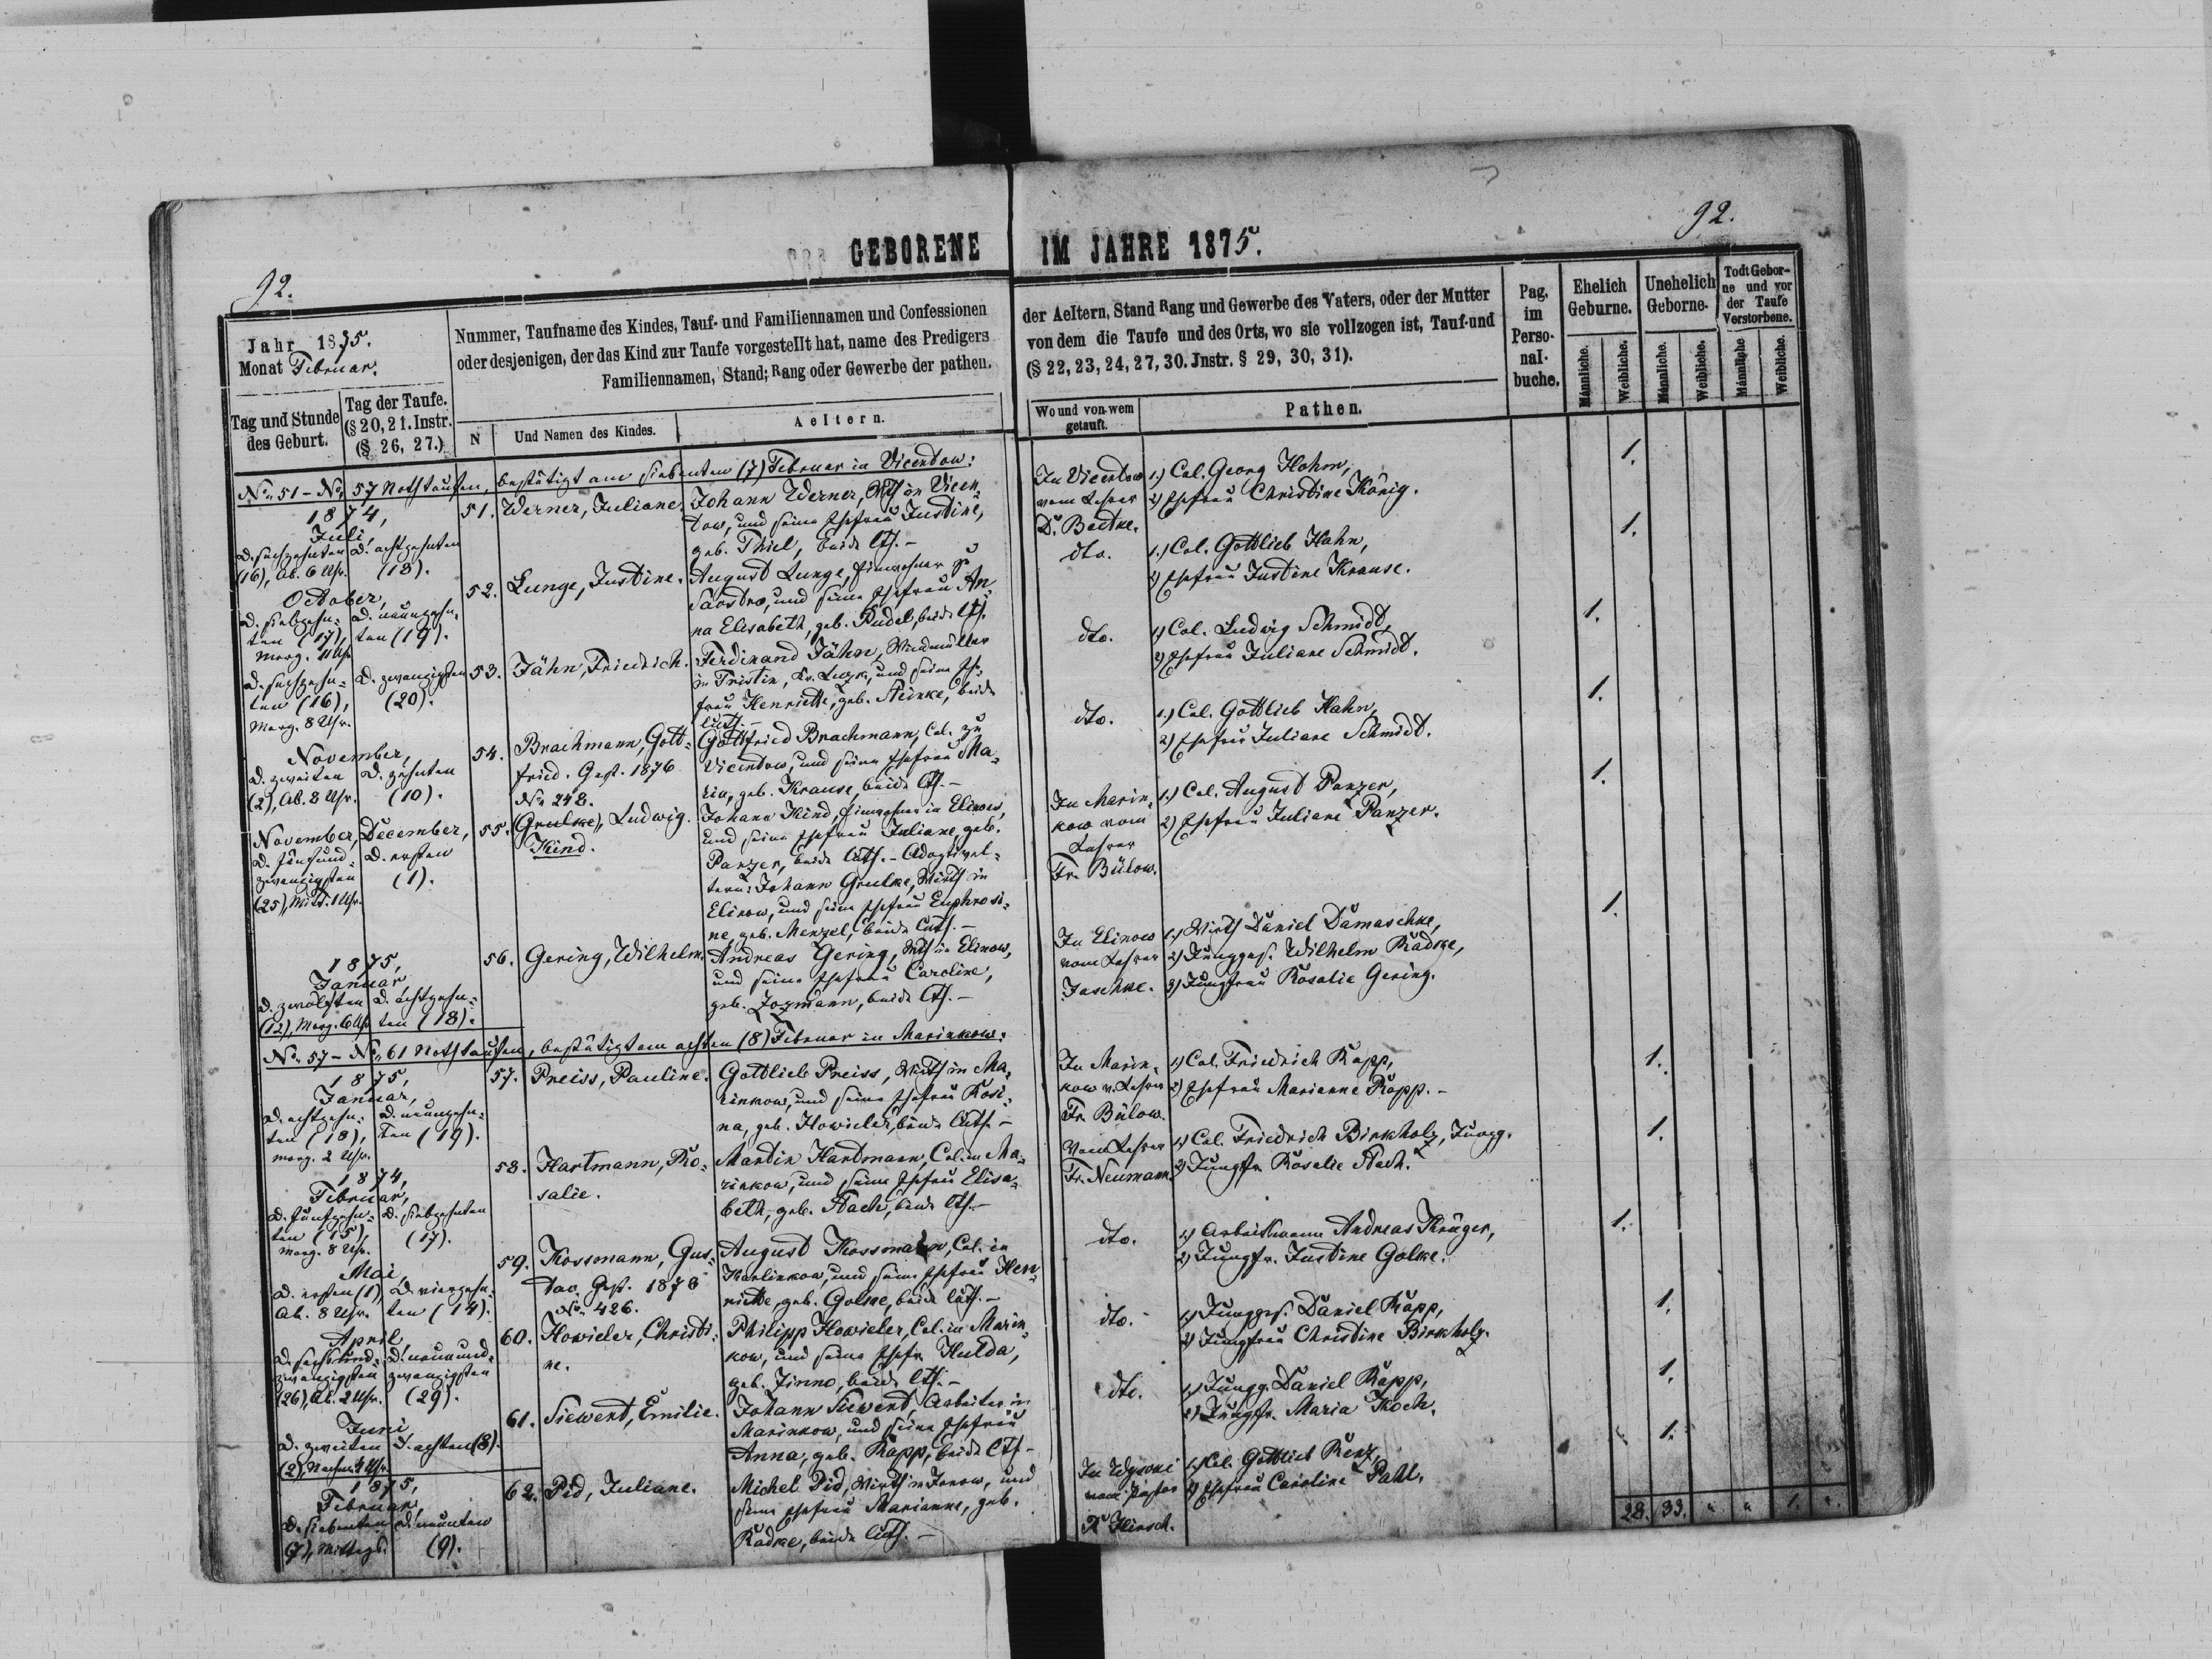 GEBORENE IM JAHRE 1875.
92.
92.
Jahr 1875.
Monat Februar.
Tag und Stunde
des Geburt.
Tag der Taufe.
(§ 20, 21. Instr.
(§ 26, 27.)
Nummer, Taufname des Kindes, Tauf- und Familiennamen und Confessionen
oder desjenigen, der das Kind zur Taufe vorgestellt hat, name des Predigers
Familiennamen, Stand; Rang oder Gewerbe der pathen.
N
Und Namen des Kindes.
Aeltern.
der Aeltern, Stand Rang und Gewerbe des Vaters, oder der Mutter
von dem die Taufe und des Orts, wo sie vollzogen ist, Tauf-und
(§ 22, 23, 24, 27, 30. Jnstr. § 29, 30, 31).
Wo und von wem
getauft.
Pathen.
Pag.
im
Perso-
nal-
buche.
Ehelich
Geburne.
Unehelich
Geborne.
Todt Gebor-
ne und vor
der Taufe
Verstorbene.
Männliche.
Weibliche.
Männliche.
Weibliche.
Männliche
Weibliche.
No. 51 - No. 57 Nothtaufen, bestätigt am siebenten (7) Februar in Vicentow:
1874,
Juli,
d. sechzehnten
(16), Ab. 6 Uhr.
d. achtzehnten
(18).
51.
Werner, Juliane.
Johann Werner, Wth in Vicen-
tow, und seine Ehefrau Justine,
geb. Thiel, beide lth. -
In Vicentow
vom Lehrer
D. Beutke.
1.) Col. Georg Hohm,
2) Ehefrau Christine König.
1.
October,
d. siebzehn-
ten (17),
Morg. 11 Uhr
d. neunzehn-
ten (19).
52.
Lunge, Justine.
August Lunge, Einwohner zu
und seine Ehefrau An-
na Elisabeth, geb. Pudel, beide lth.
dto.
1.) Col. Gottlieb Hahn,
2) Ehefrau Justine Krause.
1.
d. sechzehn-
ten (16),
Morg. 8 Uhr.
d. zwanzigsten
(20).
53.
Jähn, Friedrich.
Ferdinand Jähn, Windmüller
in Tristin, Kr. Luzk, und seine Ehe-
frau Henriette, geb. Steinke, beide
luth. -
dto.
1) Col. Ludwig Schmidt,
2) Ehefrau Juliane Schmidt.
1.
November,
d. zweiten
(2), Ab. 8 Uhr.
d. zehnten
(10).
54.
Brachmann, Gott-
fried. Gest. 1876
No. 248.
Gottfried Brachmann, Col. zu
Vicentow, und seine Ehefrau Ma-
ria, geb. Krause, beide lth. -
dto.
1.) Col. Gottlieb Hahn,
2) Ehefrau Juliane Schmidt.
1.
November,
d. fünfund-
zwanzigsten
(25), Mitt. 1 Uhr.
December,
d. ersten
(1).
55.
(Grulke), Ludwig.
Kind.
Johann Kind, Einwohner in Elinow,
und seine Ehefrau Juliane, geb.
Panzer, beide luth. - Adoptivel-
tern: Johann Grulke, Wirth in
Elinow, und seine Ehefrau Euphrosi-
ne, geb. Menzel, beide luth. -
In Marin-
kow vom
Lehrer
Fr. Bülow.
1.) Col. August Panzer,
2) Ehefrau Juliane Panzer.
1.
1875,
Januar
d. zwölften
(12), Morg. 6 Uhr
d. achtzehn-
ten (18).
56.
Gering, Wilhelm.
Andreas Gering, Wth in Elinow,
und seine Ehefrau Caroline,
geb. Zozmann, beide lth. -
In Elinow
vom Lehrer
Jaschke.
1.) Wirth Daniel Damaschke,
2) Jungges. Wilhelm Radke,
3) Jungfrau Rosalie Gering.
1.
No. 57 - No. 61 Nothtaufen, bestätigt am achten (8) Februar in Marinkow:
1875,
Januar,
d. achtzehn-
ten (18),
morg. 2 Uhr.
d. neunzehn-
ten (19).
57.
Preiss, Pauline.
Gottlieb Preiss, Wirth in Ma-
rinkow, und seine Ehefrau Rosi-
na, geb. Howieler, beide luth. -
In Marin-
kow v. Lehrer
Fr. Bülow.
1) Col. Friedrich Rapp,
2) Ehefrau Marianne Rapp. -
1.
1874,
Februar,
d. fünfzehn-
ten (15),
morg. 8 Uhr.
d. siebzehnten
(17).
58.
Hartmann, Ro-
salie.
Martin Hartmann, Col. in Ma-
rinkow, und seine Ehefrau Elisa-
beth, geb. Stach, beide lth. -
Vom Lehrer
Fr. Neumann.
1) Col. Friedrich Birkholz, Jungg.
2) Jungfr. Rosalie Stach.
1.
Mai,
d. ersten (1)
Ab. 8 Uhr.
d. vierzehn-
ten (14).
59.
Kossmann, Gus-
tav. Gest. 1878
No. 426.
August Kossmann, Col. in
Karlinkow, und seine Ehefrau Hen-
riette, geb. Golke, beide luth. -
dto.
1.) Arbeitsmann Andreas Krüger,
2) Jungfr. Justine Golke.
1.
April,
d. sechsund-
zwanzigsten
(26), Ab. 2 Uhr.
d. neunund-
zwanzigsten
(29).
60.
Howieler, Christi-
ne.
Philipp Howieler, Col. in Marin-
kow, und seine Ehefr. Hulda,
geb. Zinno, beide lth. -
dto.
1.) Jungges. Daniel Rapp,
2) Jungfrau Christine Birkholz.
1.
Juni
d. zweiten
(2), Nachm. 4 Uhr
d. achten (8).
61.
Siewert, Emilie.
Johann Siewert, Arbeiter in
Marinkow, und seine Ehefrau
Anna, geb. Rapp, beide lth. -
dto.
1.) Jungg. Daniel Rapp,
2) Jungfr. Maria Koch.
1.
1875,
Februar,
d. siebenten
(7), Mittags.
d. neunten
(9).
62.
Pid, Juliane.
Michel Pid, Wirth in Janow, und
seine Ehefrau Marianne, geb.
Radke, beide luth. -
In
vom Pastor
Hirsch.
1.) Col. Gottlieb Renz,
2) Ehefrau Caroline Pahl.
1.
28. 33. " " 1. "